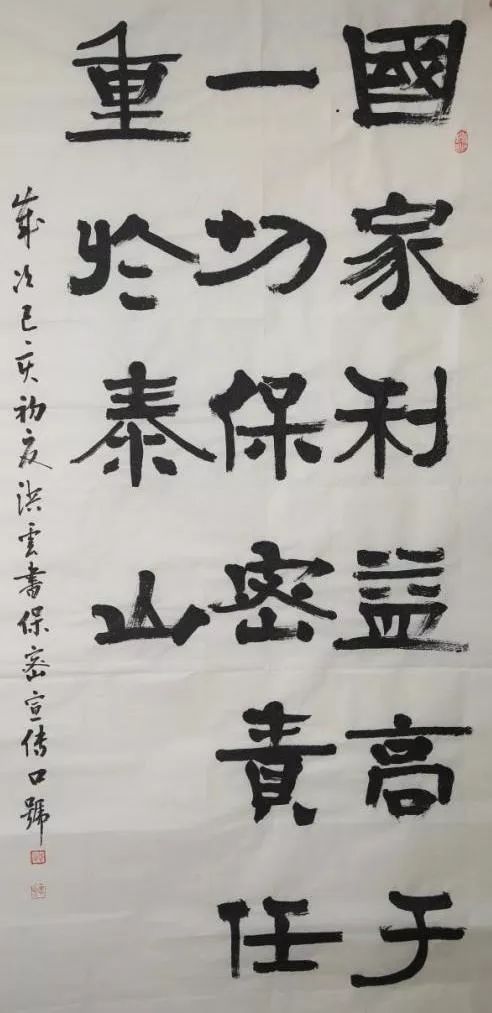 國家利益高于
一切保密責任
重於泰山
歲次己亥初夏洪雲書保密宣传口號